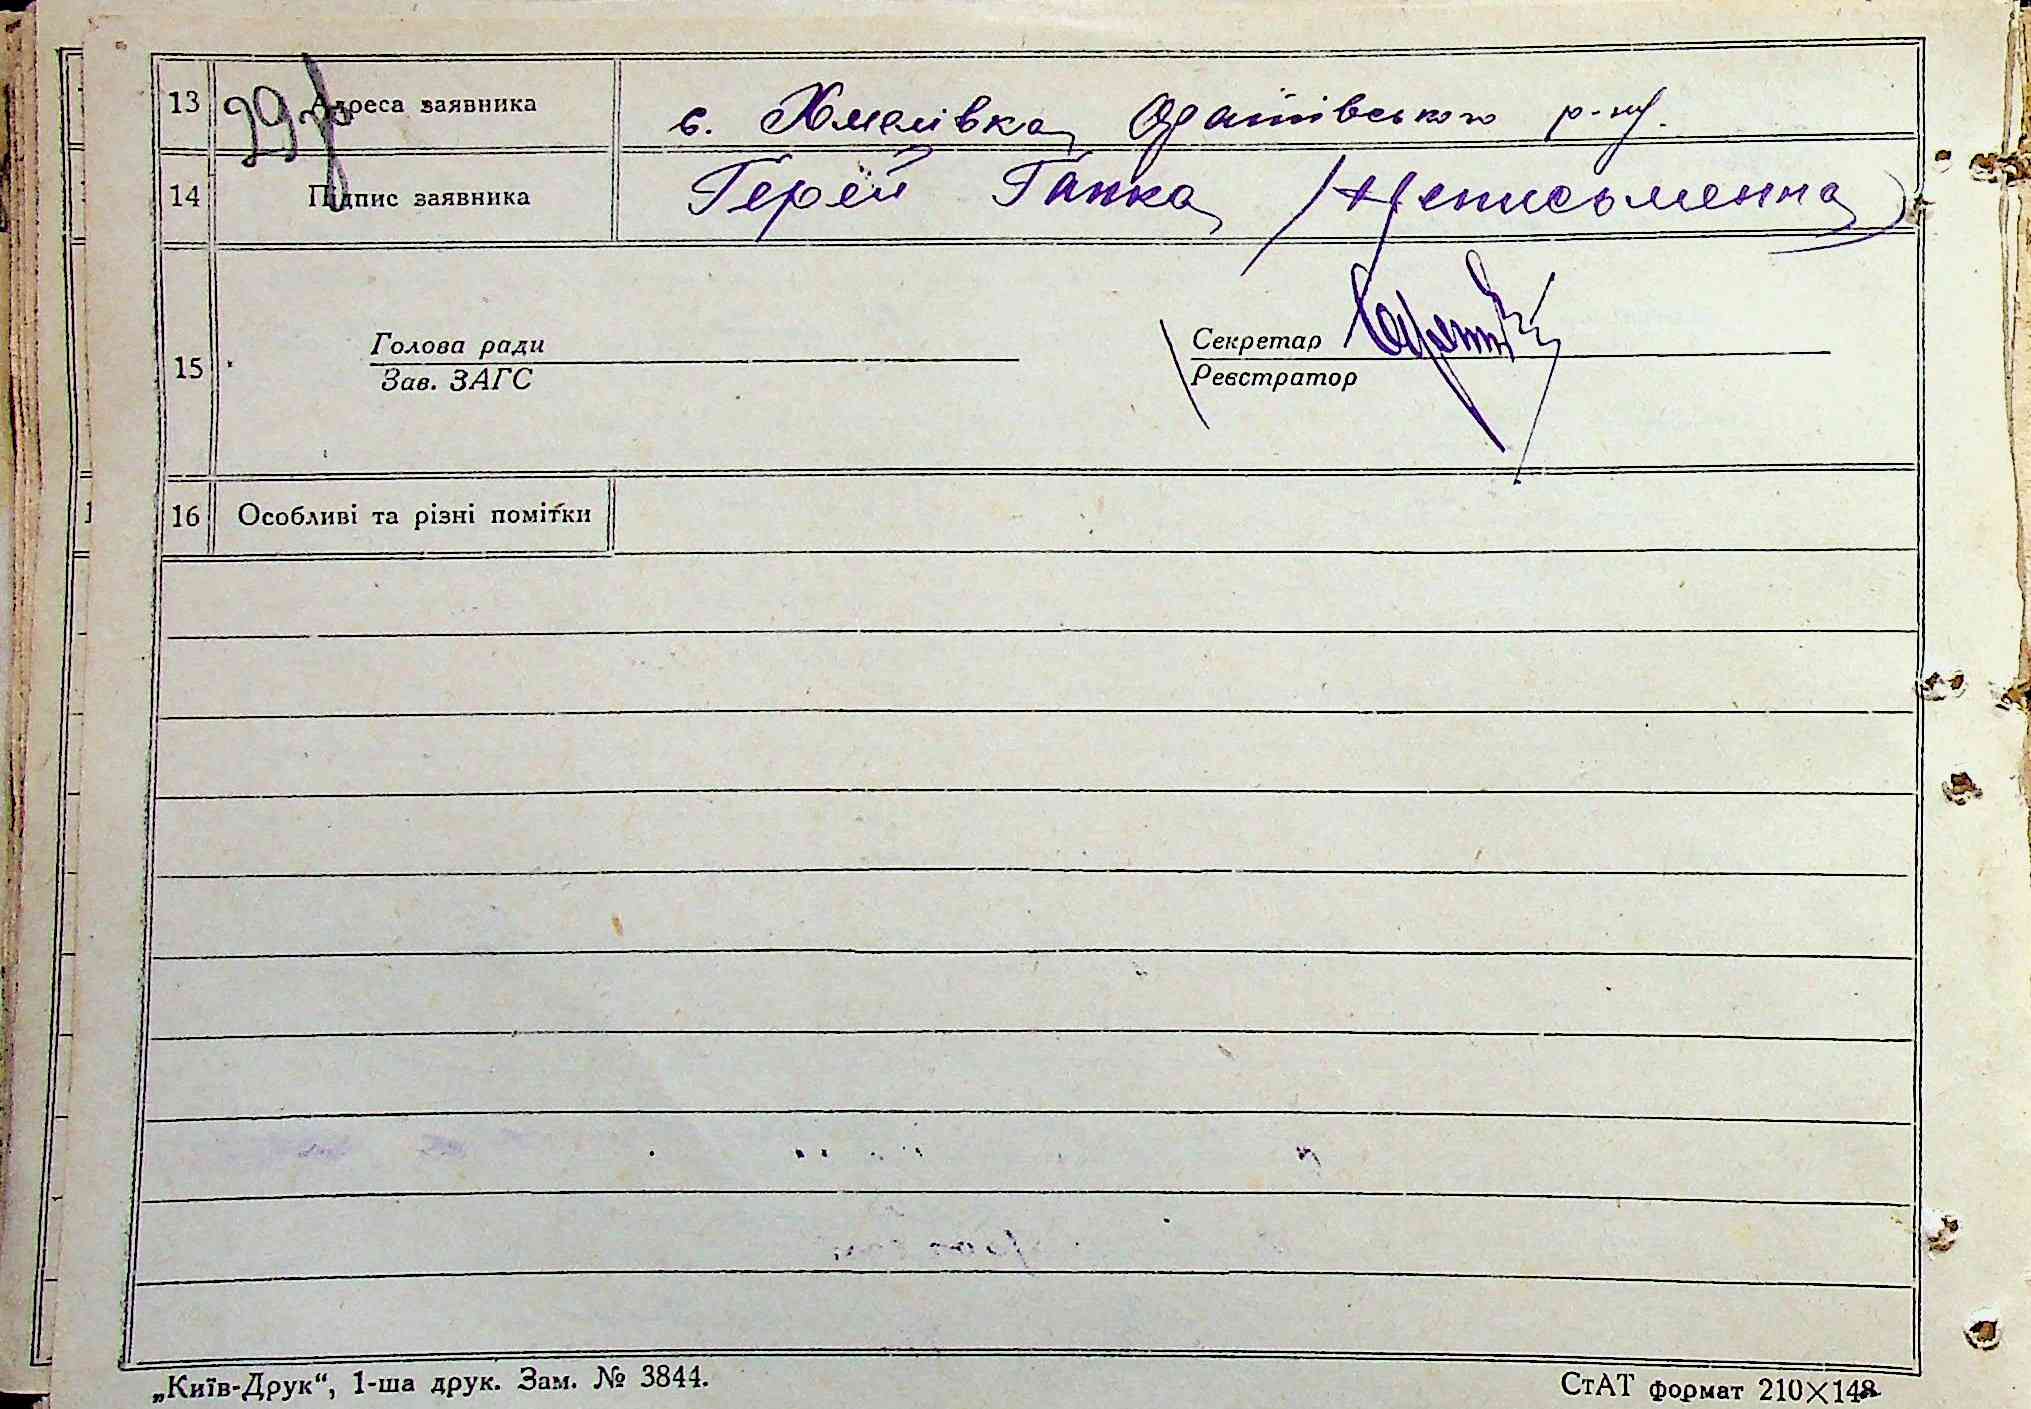 13 Адреса заявника с. Хмелівка Оратівського р-ну.
14 Підпис заявника Герей Ганка (Неписьменна)
15 Голова ради Секретар
Зав. ЗАГС Реєстратор
16 Особливі та різні помітки
„Київ-Друк“, 1-ша друк. Зам. № 3844.
СтАТ формат 210×148